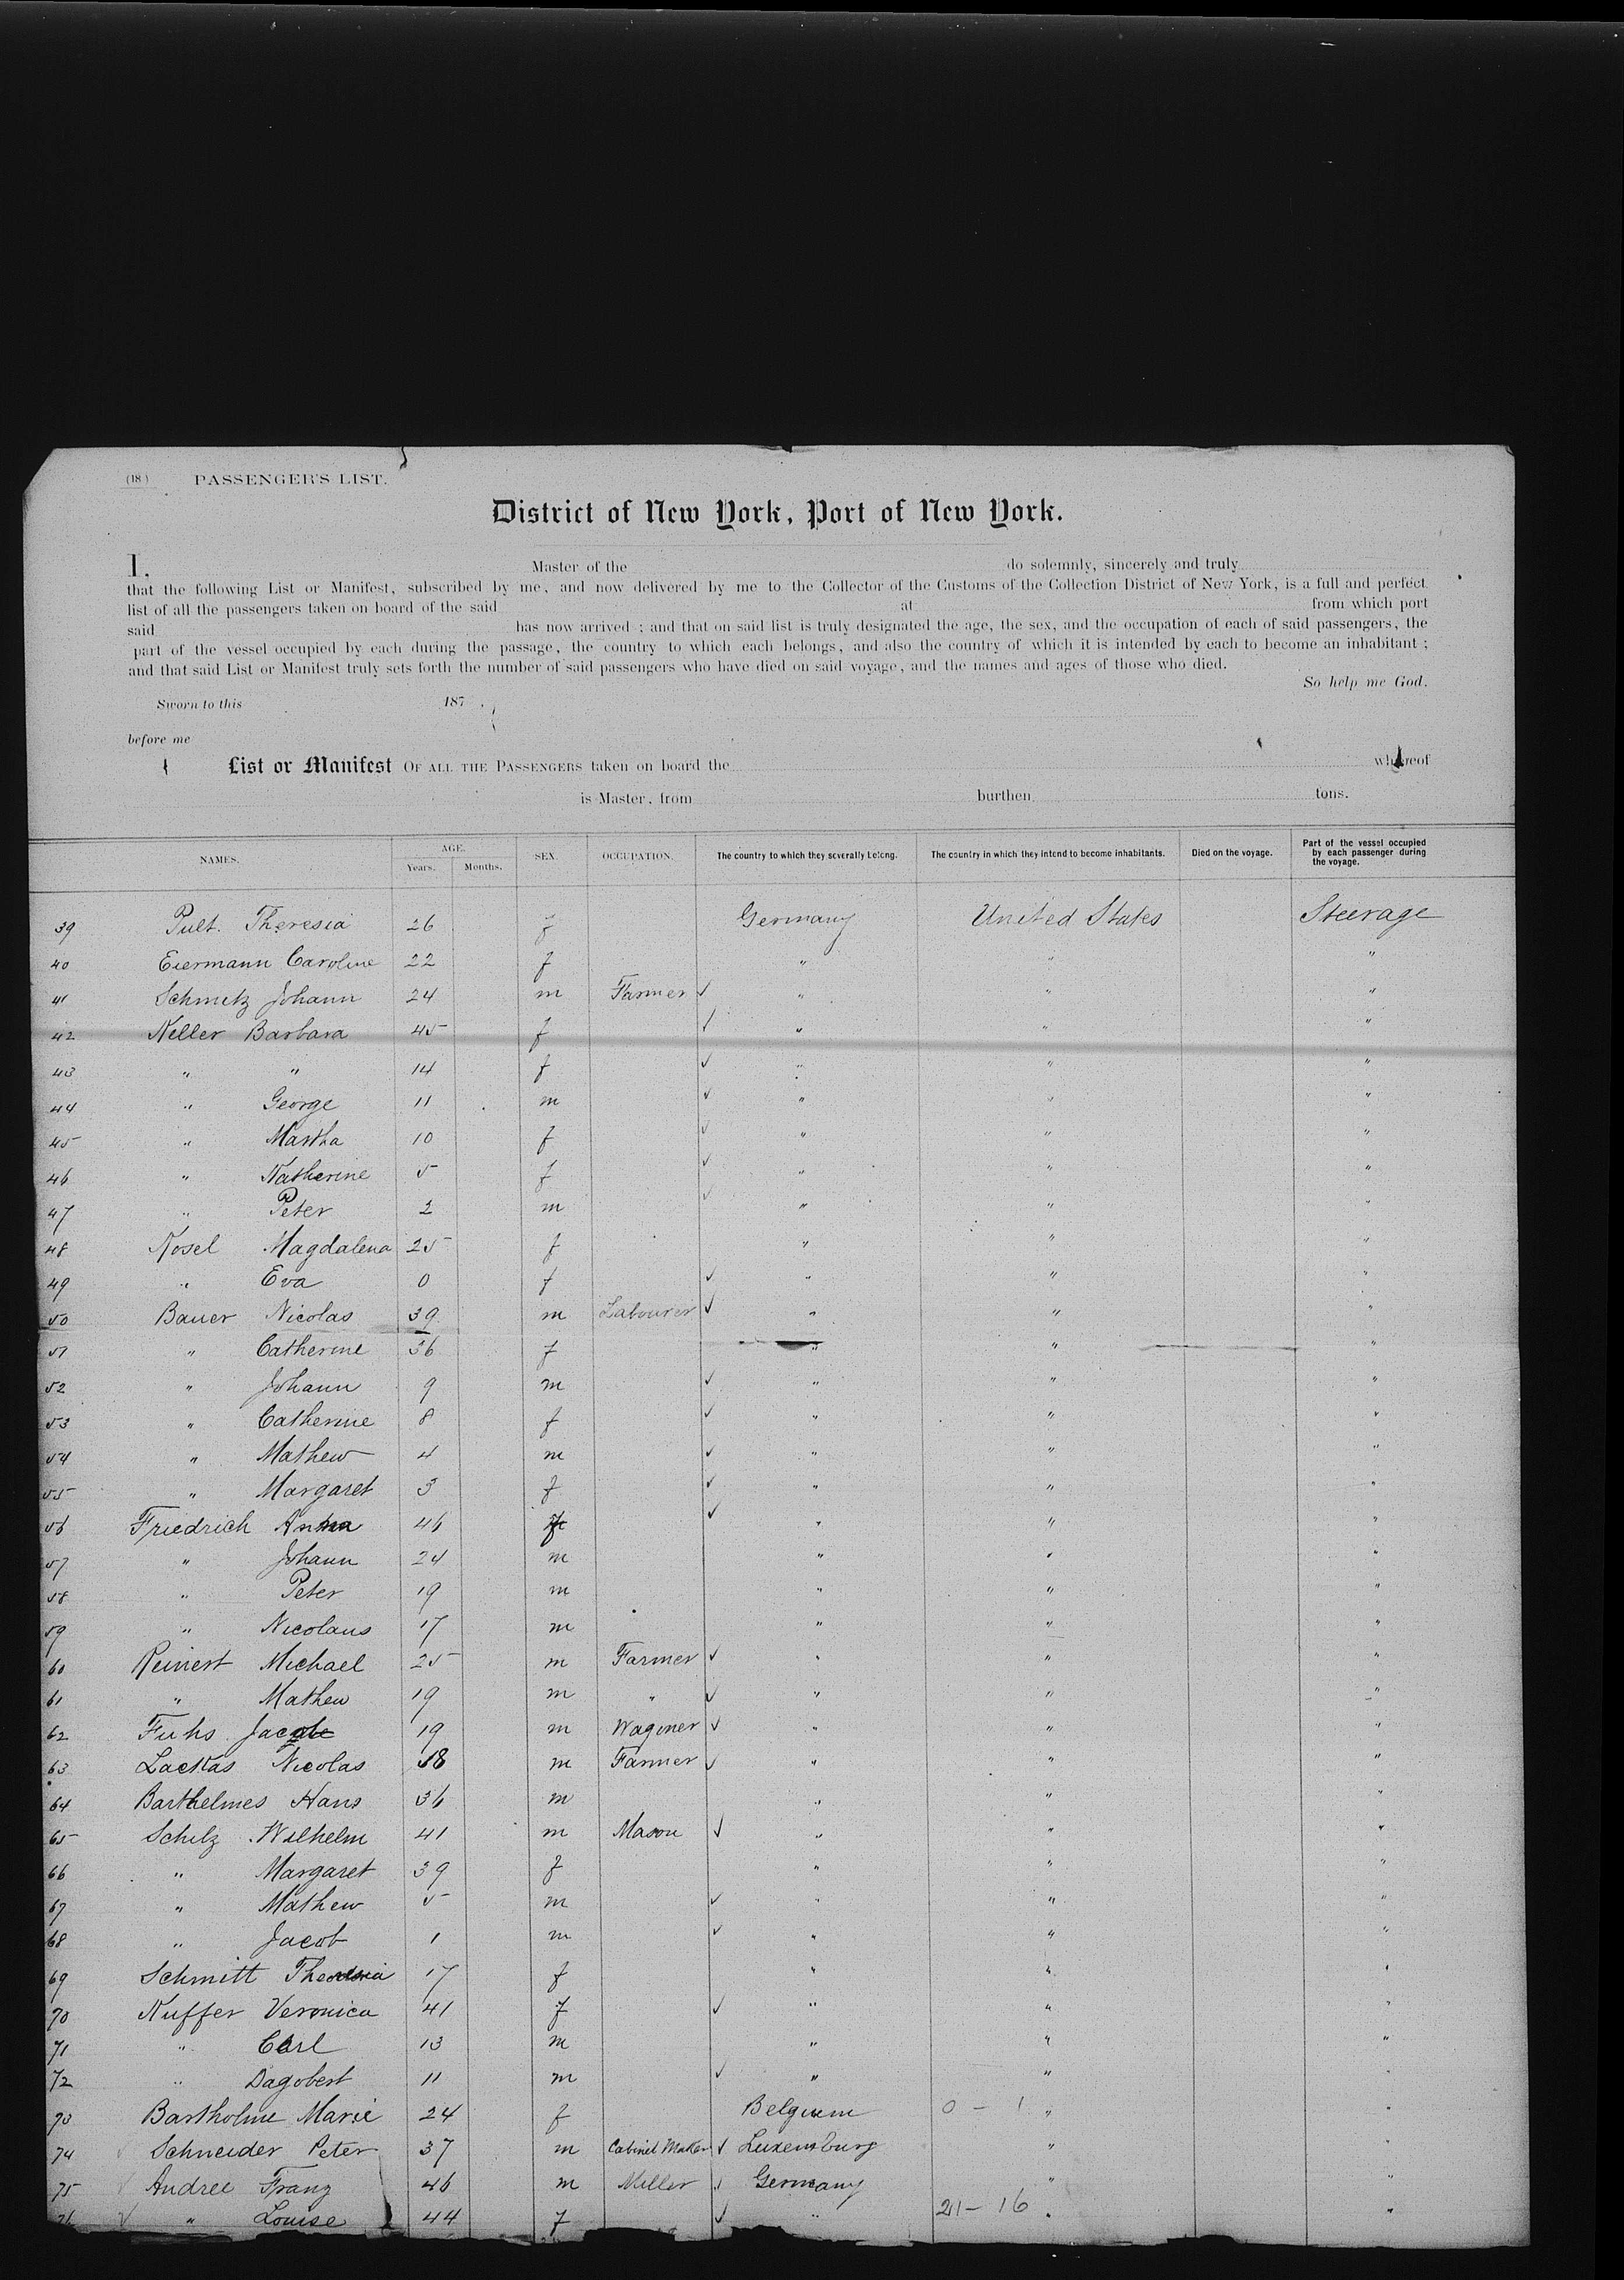 (18) PASSENGER'S LIST.
District of New York, Port of New York.
I, Master of the do solemnly, sincerely and truly
that the following List or Manifest, subscribed by me, and now delivered by me to the Collector of the Customs of the Collection District of New York, is a full and perfect
list of all the passengers taken on board of the said at from which port
said has now arrived ; and that on said list is truly designated the age, the sex, and the occupation of each of said passengers, the
part of the vessel occupied by each during the passage, the country to which each belongs, and also the country of which it is intended by each to become an inhabitant ;
and that said List or Manifest truly sets forth the number of said passengers who have died on said voyage, and the names and ages of those who died.
So help me God.
Sworn to this 187 .
before me
List or Manifest OF ALL THE PASSENGERS taken on board the whereof
is Master, from burthen tons.
NAMES. AGE. Years. Months. SEX. OCCUPATION. The country to which they severally belong. The country in which they intend to become inhabitants. Died on the voyage. Part of the vessel occupied by each passenger during the voyage.
39 Pult. Theresia 26 f Germany United States Steerage
40 Eiermann Caroline 22 f " " "
41 Schmitz Johann 24 m Farmer ✓ " " "
42 Keller Barbara 45 f ✓ " " "
43 " " 14 f ✓ " " "
44 " George 11 m ✓ " " "
45 " Martha 10 f ✓ " " "
46 " Katherine 5 f ✓ " " "
47 " Peter 2 m ✓ " " "
48 Kosel Magdalena 25 f " " "
49 " Eva 0 f ✓ " " "
50 Bauer Nicolas 39 m Labourer ✓ " " "
51 " Catherine 36 f " " "
52 " Johann 9 m ✓ " " "
53 " Catherine 8 f ✓ " " "
54 " Mathew 4 m ✓ " " "
55 " Margaret 3 f ✓ " " "
56 Friedrich Anna 46 f ✓ " " "
57 " Johann 24 m " " "
58 " Peter 19 m " " "
59 " Nicolaus 17 m " " "
60 Reinert Michael 25 m Farmer ✓ " " "
61 " Mathew 19 m " ✓ " " "
62 Fuhs Jacob 19 m Wagoner ✓ " " "
63 Lackas Nicolas 18 m Farmer ✓ " " "
64 Barthelmes Hans 36 m " " "
65 Schilz Wilhelm 41 m Mason ✓ " " "
66 " Margaret 39 f " " "
67 " Mathew 5 m ✓ " " "
68 " Jacob 1 m ✓ " " "
69 Schmitt Theresia 17 f " " "
70 Kuffer Veronica 41 f ✓ " " "
71 " Carl 13 m " " "
72 " Dagobert 11 m ✓ " " "
73 Bartholme Marie 24 f Belgium 0 - 1 " "
74 Schneider Peter 37 m Cabinet Maker ✓ Luxemburg " "
75 Andree Franz 46 m Miller ✓ Germany " "
76 ✓ " Louise 44 f ✓ " 21 - 16 " "